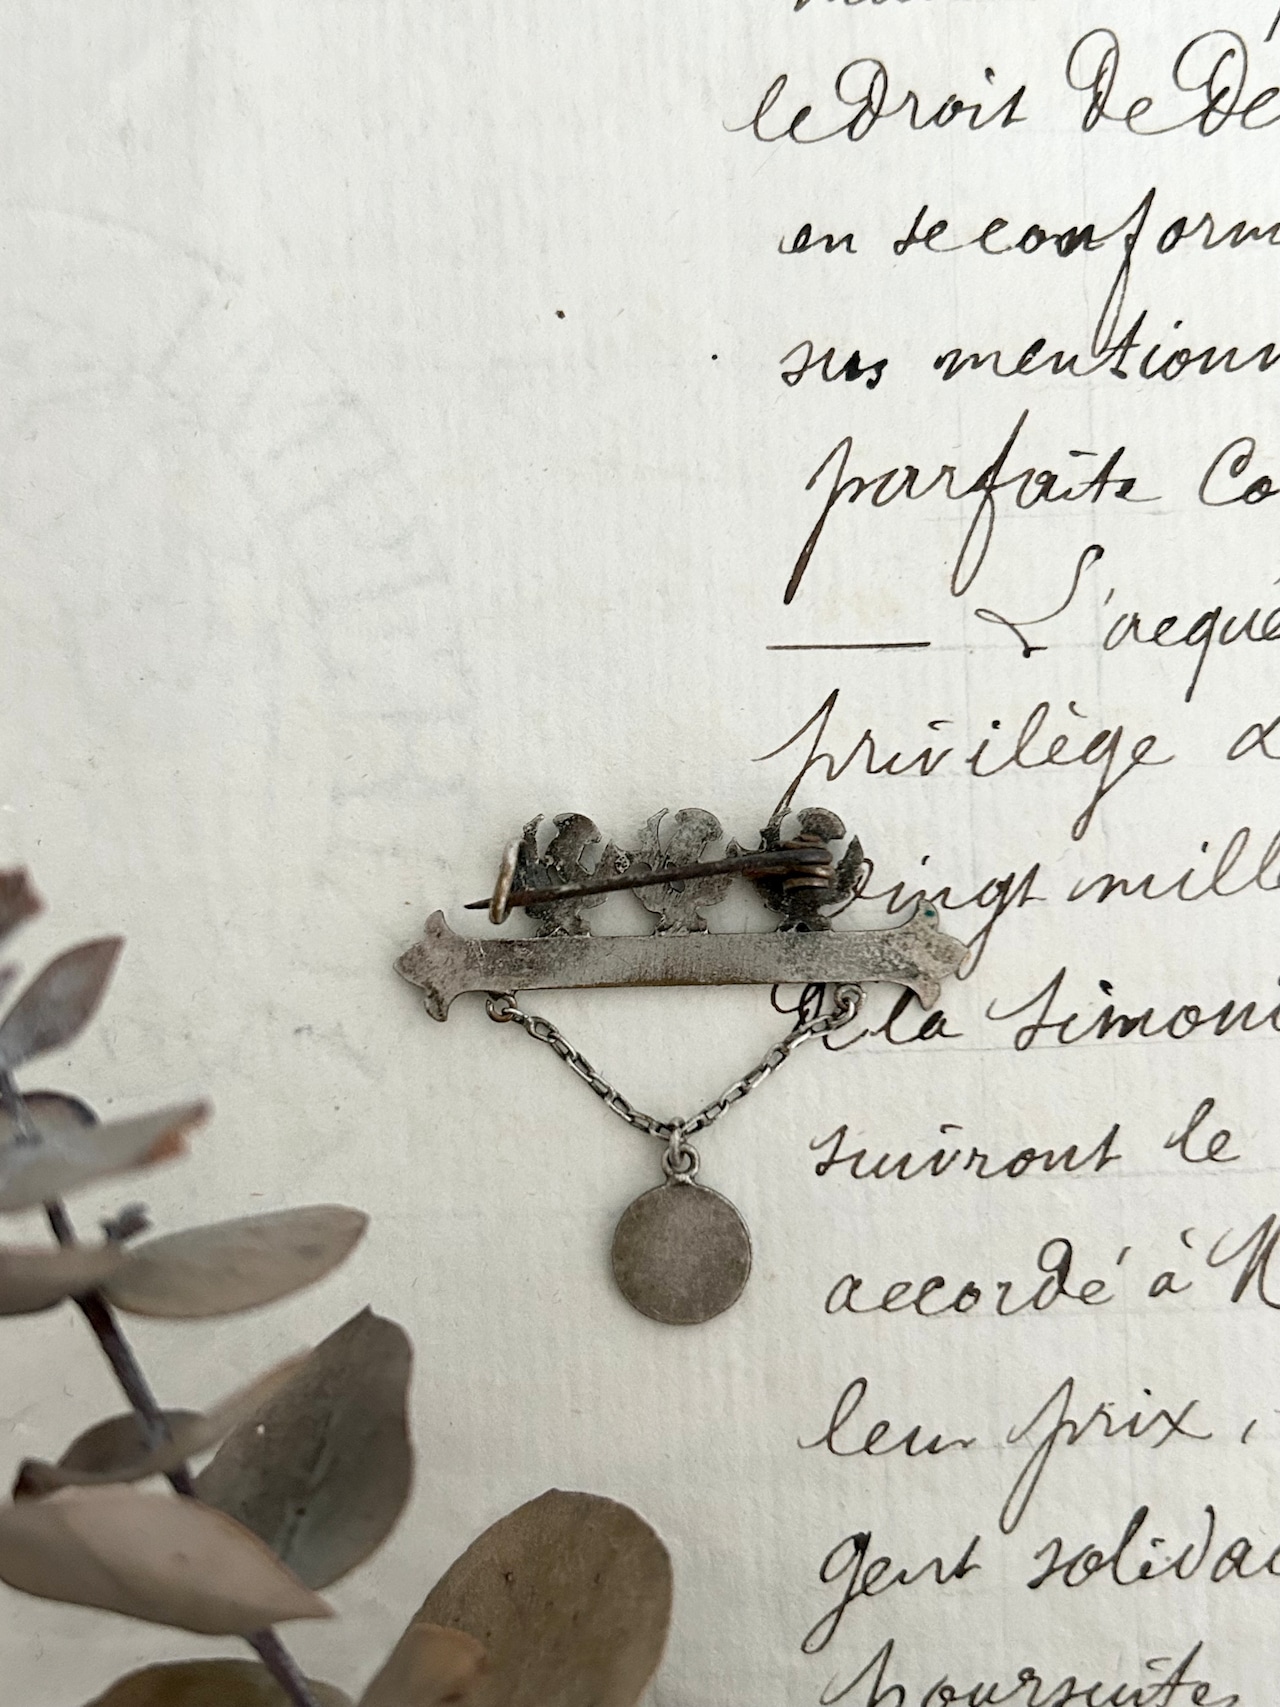 le Droit De Dé
en se conform
sus mentionn
parfaite Co
— L'acqué
privilège d
vingt mille
De la Simoni
suivront le
accordé à M
leur prix,
gent solidai
poursuites